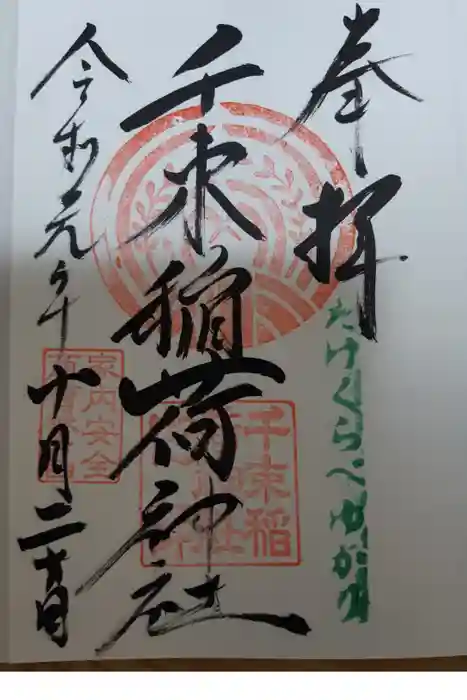 奉拝
たけくらべゆかり
千束稲荷神社
千束稲
令和元年十月二十日
家内安全